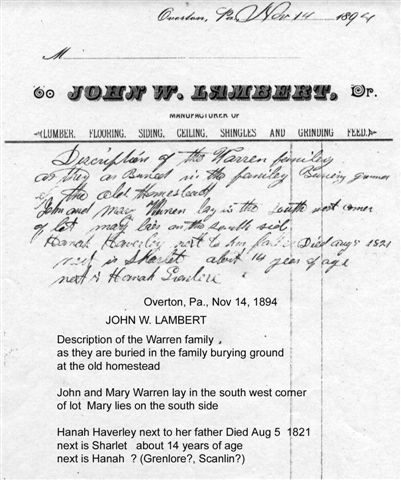 Overton, Pa., Nov 14 1894
M
To JOHN W. LAMBERT, Dr.
MANUFACTURER OF
LUMBER, FLOORING, SIDING, CEILING, SHINGLES AND GRINDING FEED.
Discription of the Warren familey
as they as Buried in the familey Buriing grunn
of the old Homestead
John and Mary Warren lay in the South west corner
of lot mary lies on the south side
Hanah Haverley next to her father Died Aug 5 1821
next is Sharlet about 14 year of age
next is Hanah
Overton, Pa., Nov 14, 1894
JOHN W. LAMBERT
Description of the Warren family ,
as they are buried in the family burying ground
at the old homestead
John and Mary Warren lay in the south west corner
of lot Mary lies on the south side
Hanah Haverley next to her father Died Aug 5 1821
next is Sharlet about 14 years of age
next is Hanah ? (Grenlore?, Scanlin?)